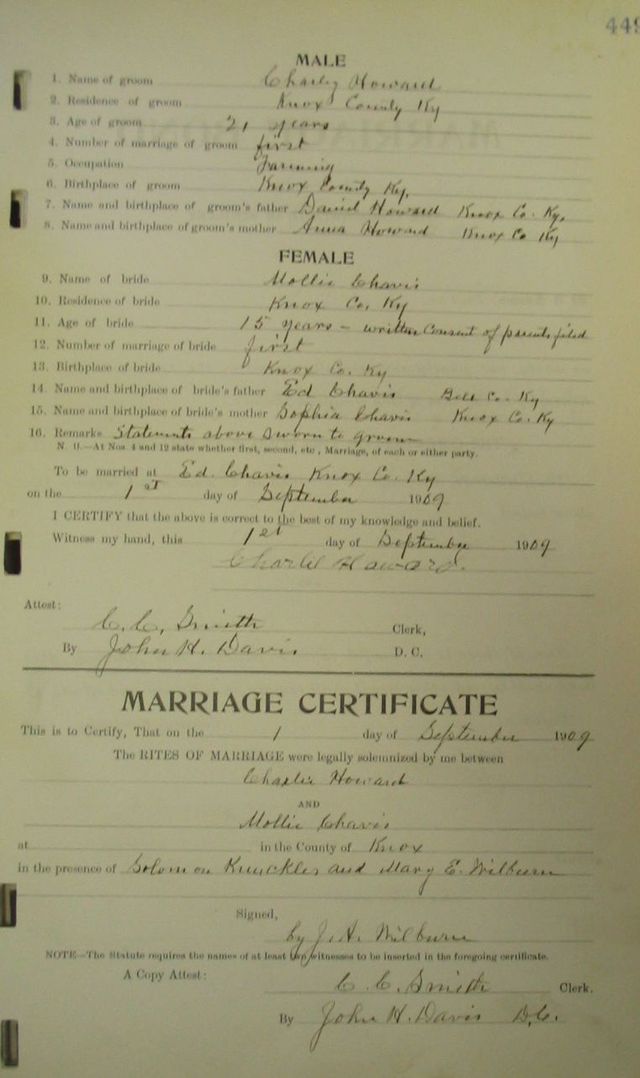 449
MALE
1. Name of groom Charley Howard
2. Residence of groom Knox County Ky
3. Age of groom 21 years
4. Number of marriage of groom first
5. Occupation Farming
6. Birthplace of groom Knox County Ky.
7. Name and birthplace of groom's father Daniel Howard Knox Co. Ky.
8. Name and birthplace of groom's mother Anna Howard Knox Co Ky
FEMALE
9. Name of bride Mollie Chavis
10. Residence of bride Knox Co. Ky
11. Age of bride 15 years - written consent of parents filed
12. Number of marriage of bride first
13. Birthplace of bride Knox Co. Ky
14. Name and birthplace of bride's father Ed Chavis Bell Co. Ky
15. Name and birthplace of bride's mother Sophia Chavis Knox Co. Ky
16. Remarks Statements above sworn to groom
N. B.—At Nos. 4 and 12 state whether first, second, etc, Marriage, of each or either party.
To be married at Ed. Chavis Knox Co. Ky
on the 1st day of September 1909
I CERTIFY that the above is correct to the best of my knowledge and belief.
Witness my hand, this 1st day of September 1909
Charlie Howard.
Attest:
C. C. Smith Clerk,
By John H. Davis D. C.
MARRIAGE CERTIFICATE
This is to Certify, That on the 1 day of September 1909
The RITES OF MARRIAGE were legally solemnized by me between
Charlie Howard
AND
Mollie Chavis
at in the County of Knox
in the presence of Solomon Knuckles and Mary E. Wilburn
Signed,
by J. A. Wilburn
NOTE—The Statute requires the names of at least two witnesses to be inserted in the foregoing certificate.
A Copy Attest:
C. C. Smith Clerk.
By John H. Davis D.C.